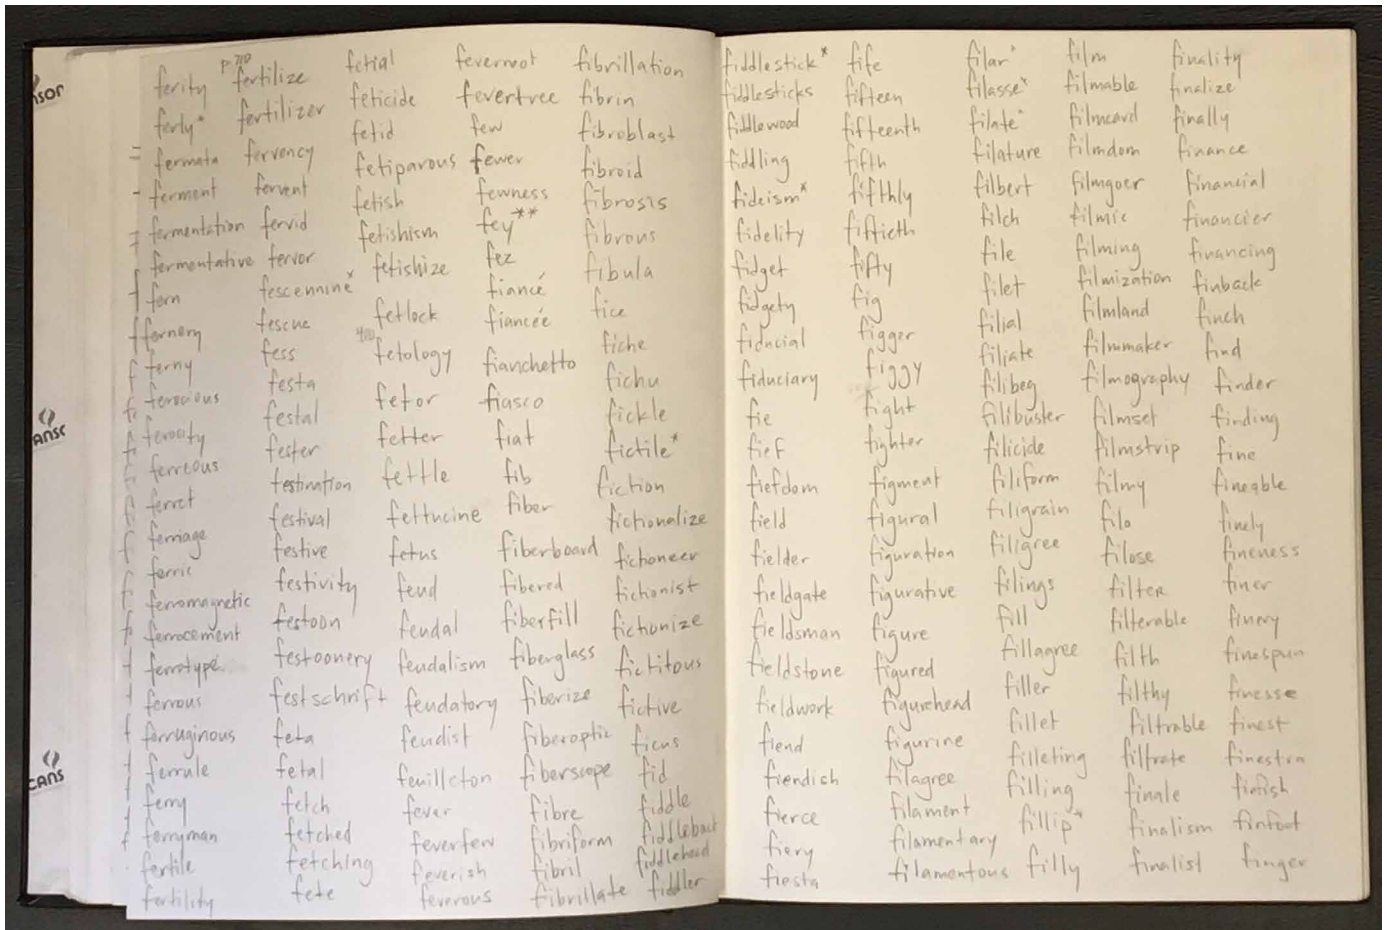 p. 710
ferity
ferly*
fermata
ferment
fermentation
fermentative
fern
fernery
ferny
ferocious
ferocity
ferreous
ferret
ferriage
ferric
ferromagnetic
ferrocement
ferrotype
ferrous
ferruginous
ferrule
ferry
ferryman
fertile
fertility
fertilize
fertilizer
fervency
fervent
fervid
fervor
fescennine*
fescue
fess
festa
festal
fester
festination
festival
festive
festivity
festoon
festoonery
festschrift
feta
fetal
fetch
fetched
fetching
fete
fetial
feticide
fetid
fetiparous
fetish
fetishism
fetishize
fetlock
fetology
fetor
fetter
fettle
fettucine
fetus
feud
feudal
feudalism
feudatory
feudist
feuilleton
fever
feverfew
feverish
feverous
feverroot
fevertree
few
fewer
fewness
fey**
fez
fiancé
fiancée
fianchetto
fiasco
fiat
fib
fiber
fiberboard
fibered
fiberfill
fiberglass
fiberize
fiberoptic
fiberscope
fibre
fibriform
fibril
fibrillate
fibrillation
fibrin
fibroblast
fibroid
fibrosis
fibrous
fibula
fice
fiche
fichu
fickle
fictile*
fiction
fictionalize
fictioneer
fictionist
fictionize
fictitous
fictive
ficus
fid
fiddle
fiddleback
fiddlehead
fiddler
fiddlestick*
fiddlesticks
fiddlewood
fiddling
fideism*
fidelity
fidget
fidgety
fiducial
fiduciary
fie
fief
fiefdom
field
fielder
fieldgate
fieldsman
fieldstone
fieldwork
fiend
fiendish
fierce
fiery
fiesta
fife
fifteen
fifteenth
fifth
fifthly
fiftieth
fifty
fig
figger
figgy
fight
fighter
figment
figural
figuration
figurative
figure
figured
figurehead
figurine
filagree
filament
filamentary
filamentous
filar*
filasse*
filate*
filature
filbert
filch
file
filet
filial
filiate
filibeg
filibuster
filicide
filiform
filigrain
filigree
filings
fill
fillagree
filler
fillet
filleting
filling
fillip*
filly
film
filmable
filmcard
filmdom
filmgoer
filmic
filming
filmization
filmland
filmmaker
filmography
filmset
filmstrip
filmy
filo
filose
filter
filterable
filth
filthy
filtrable
filtrate
finale
finalism
finalist
finality
finalize
finally
finance
financial
financier
financing
finback
finch
find
finder
finding
fine
fineable
finely
fineness
finer
finery
finespun
finesse
finest
finestra
finfish
finfoot
finger